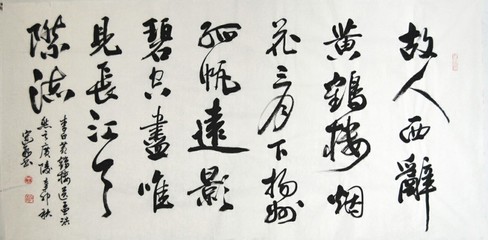 故人西辭
黄鶴樓烟
花三月下揚州
孤帆遠影
碧空盡唯
見長江天
際流
李白黄鶴樓送孟浩
然之廣陵辛卯秋
書